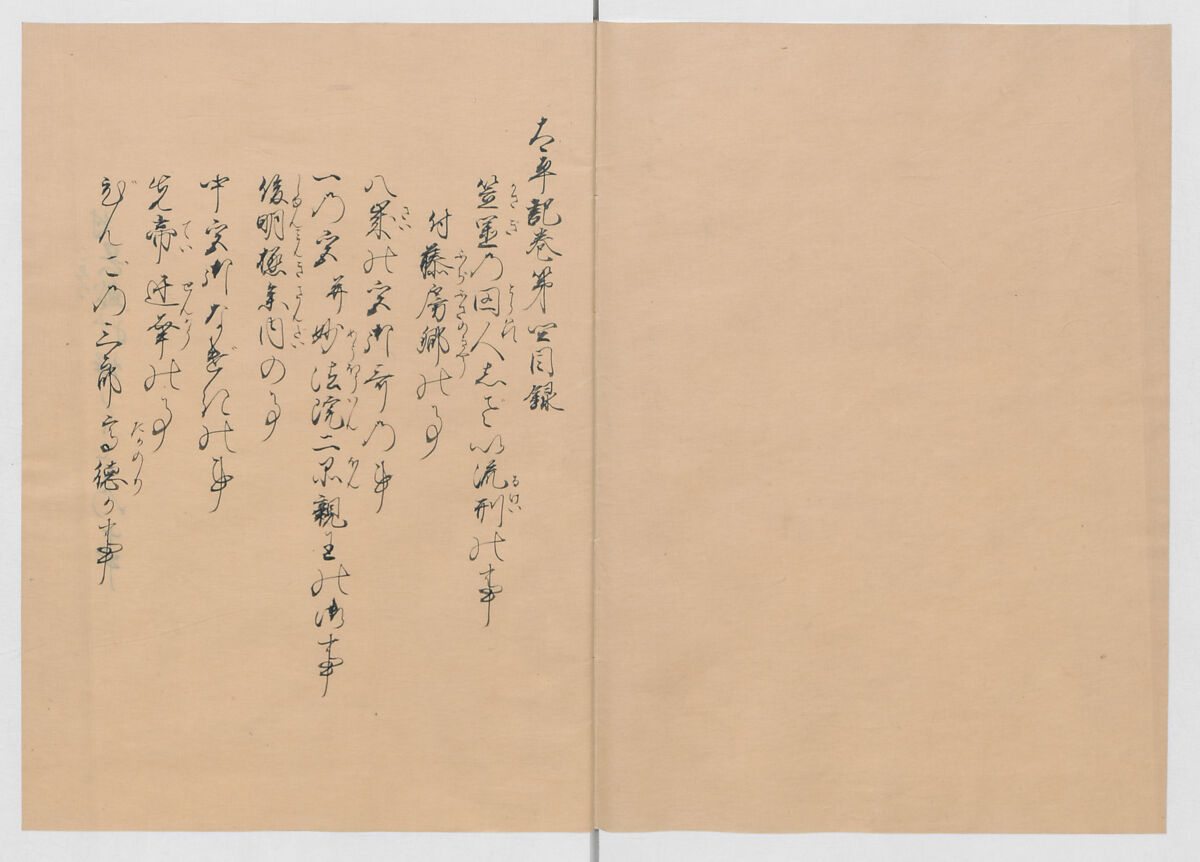 太平記巻第四目録
笠置の囚人しざい流刑の事
付藤房卿の事
八歳の宮御哥の事
一の宮并妙法院二品親王の御事
俊明極参内の事
中宮御なげきの事
先帝迁幸の事
びんごの三郎高徳か事